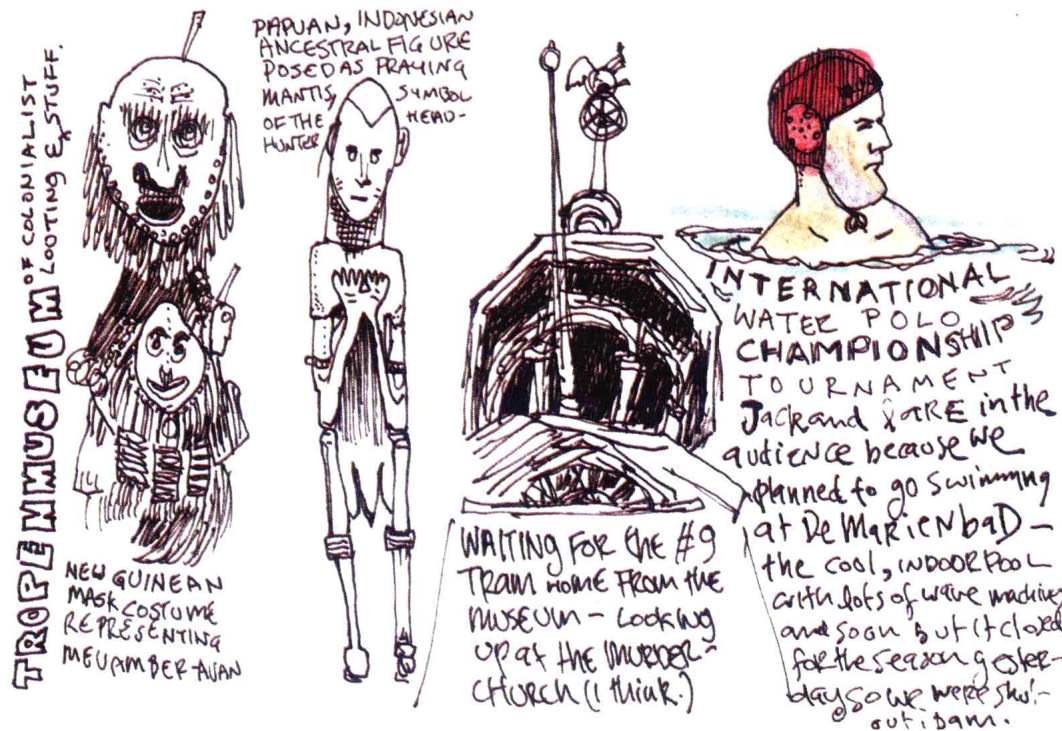 TROPEMMUSEUM OF COLONIALIST
LOOTING & STUFF.
NEW GUINEAN
MASK COSTUME
REPRESENTING
PAPUAN, INDONESIAN
ANCESTRAL FIGURE
POSED AS PRAYING
MANTIS, SYMBOL
OF THE HEAD-
HUNTER
WAITING FOR the #9
TRAM HOME FROM THE
museum - Looking
up at the MURDER-
CHURCH (I think.)
INTERNATIONAL
WATER POLO
CHAMPIONSHIP
TOURNAMENT
Jack and I ARE in the
audience because we
planned to go swimming
at De MARIENbaD -
the cool, INDOOR POOL
with lots of wave machines
and so on but it closed
for the season yester-
day so we were shut
out